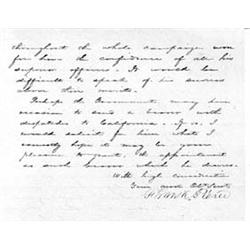 throughout the whole campaign won
for him the confidence of all his
superior officers. It would be
difficult to speak of his services
above their merits.
Perhaps the Government may have
occasion to send a bearer with
dispatches to California. If so, I
would solicit for him what I
earnestly hope it may be your
pleasure to grant, the appointment
as such bearer which he desires.
With high consideration
Your most Obt Servt
Frank Pierce